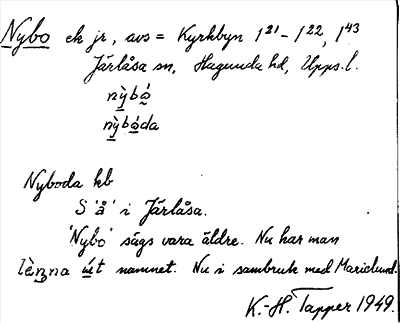 Nybo ek jr, avs = Kyrkbyn 1²¹–1²², 1⁴³
Järlåsa sn, Hagunda hd, Upps. l.
nỳbó̰
nỳbó̰da
Nyboda kb
S 'å' i Järlåsa.
'Nybo' sägs vara äldre. Nu har man
lèn̠na út namnet. Nu i sambruk med Marielund.
K.-H. Tapper 1949.